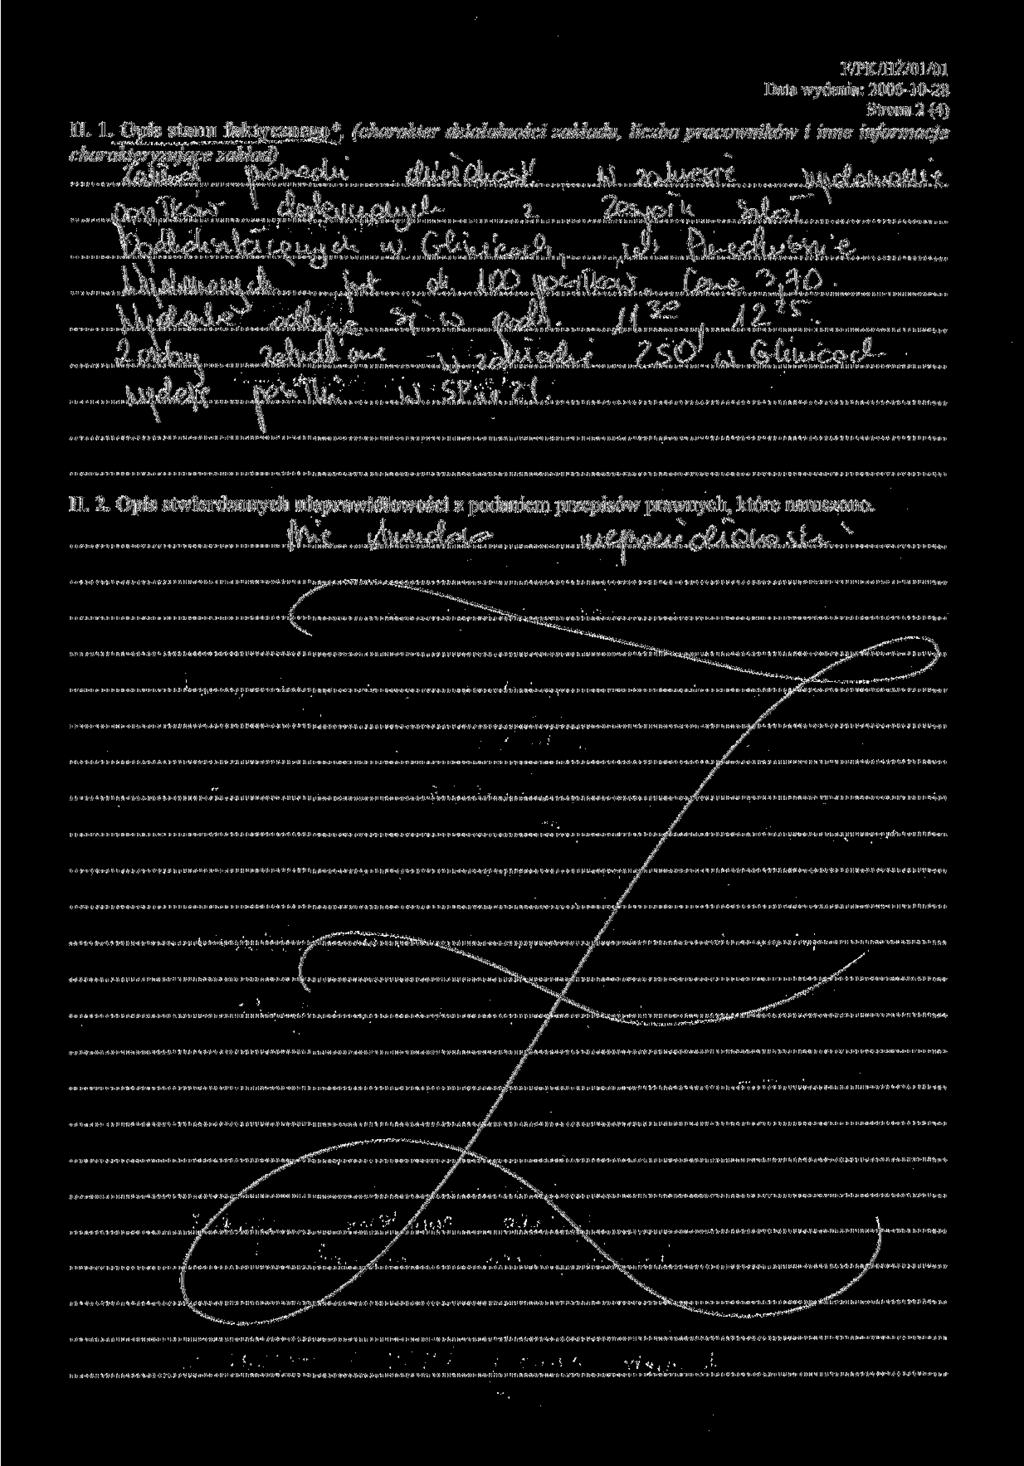 F/PK/HŻ/01/01
Data wydania: 2006-10-28
Strona 2 (4)
II. 1. Opis stanu faktycznego*, (charakter działalności zakładu, liczba pracowników i inne informacje
charakteryzujące zakład)
Zakład prowadzi działalność w zakresie wydawania
posiłków dostarczanych z Zespołu Szkół
w Gliwicach,
Wydawanych jest ok. 100 posiłków. Cena 3,70.
odbywa się w godz. 11 30, 12 25.
2 osoby w 250 w Gliwicach
wydaje posiłki w SP nr 21.
II. 2. Opis stwierdzonych nieprawidłowości z podaniem przepisów prawnych, które naruszono.
Nie stwierdzono nieprawidłowości